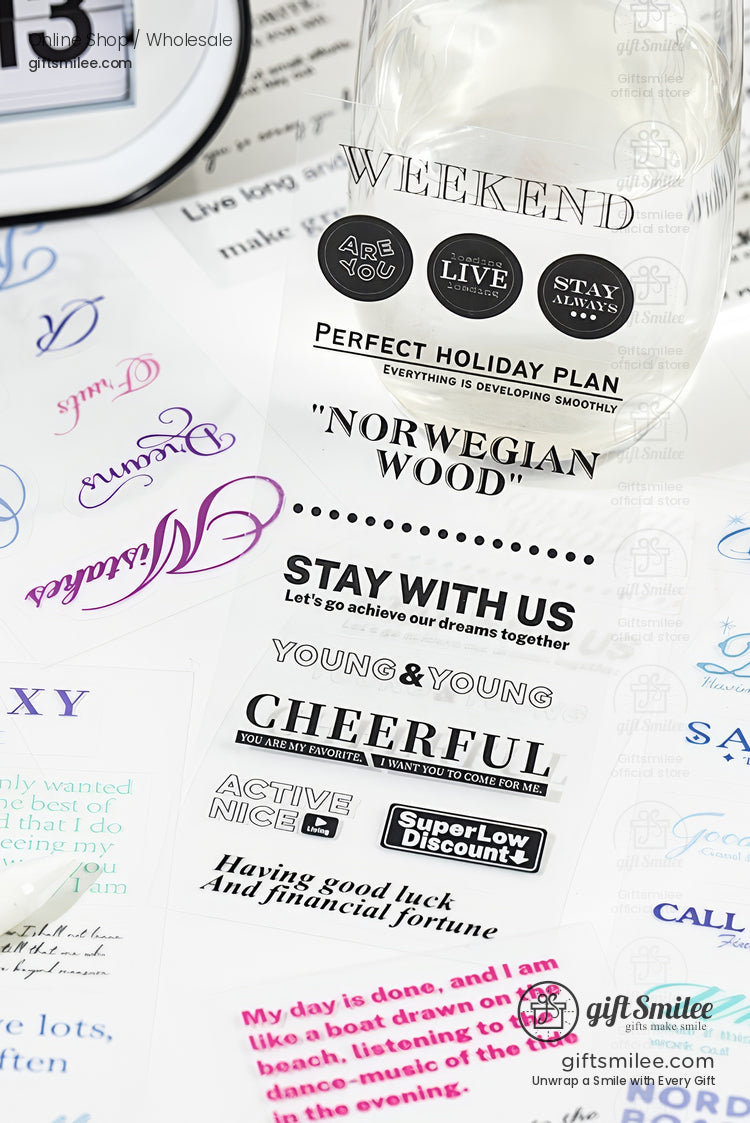 13
Online Shop / Wholesale
giftsmilee.com
Live long and
make
gift Smilee
Giftsmilee
official store
WEEKEND
ARE
YOU
loading
LIVE
loading
STAY
ALWAYS
PERFECT HOLIDAY PLAN
EVERYTHING IS DEVELOPING SMOOTHLY
"NORWEGIAN
WOOD"
STAY WITH US
Let's go achieve our dreams together
YOUNG & YOUNG
CHEERFUL
YOU ARE MY FAVORITE. I WANT YOU TO COME FOR ME.
ACTIVE
NICE Living
SuperLow
Discount
Having good luck
And financial fortune
Fruits
Dreams
Mistakes
XY
only wanted
the best of
that I do
seeing my
you
I am
lots,
often
CALL
My day is done, and I am
like a boat drawn on the
beach, listening to the
dance-music of the tide
in the evening.
gift Smilee
gifts make smile
giftsmilee.com
Unwrap a Smile with Every Gift